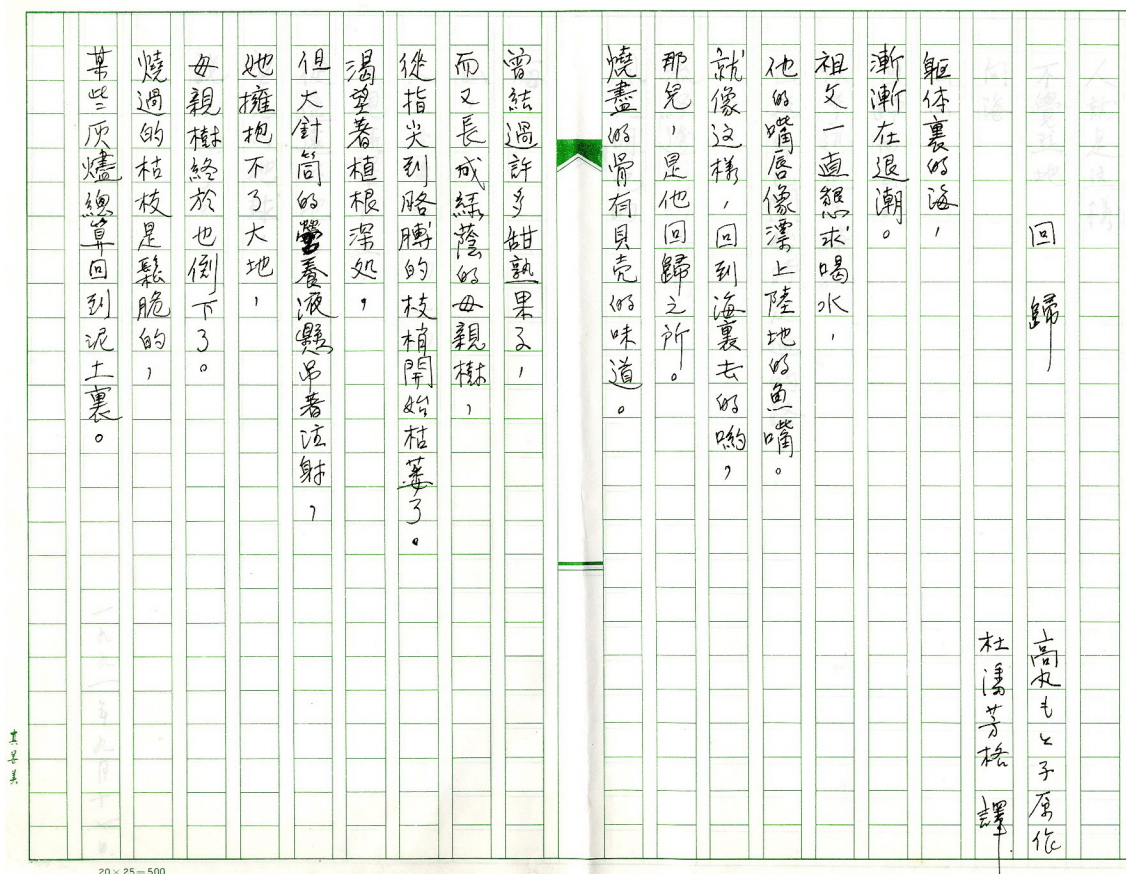 回歸
高丸もと子原作
杜潘芳格 譯
躯体裏的海，
漸漸在退潮。
祖父一直懇求喝水，
他的嘴唇像漂上陸地的魚嘴。
就像这樣，回到海裏去的喲，
那兒，是他回歸之所。
燒盡的骨有貝壳的味道。
曾結過許多甜熟果子，
而又長成綠蔭的母親樹，
從指尖到胳膊的枝梢開始枯萎了。
渴望着植根深処，
但大針筒的營養液懸吊着注射，
她擁抱不了大地，
母親樹終於也倒下了。
燒過的枯枝是鬆脆的，
某些灰燼總算回到泥土裏。
20×25=500